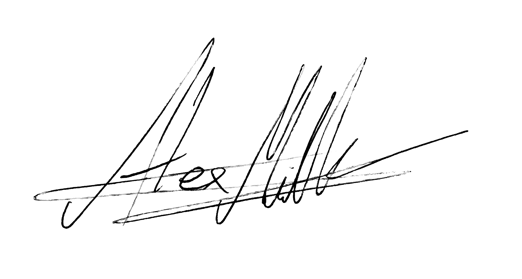 Alex Mill